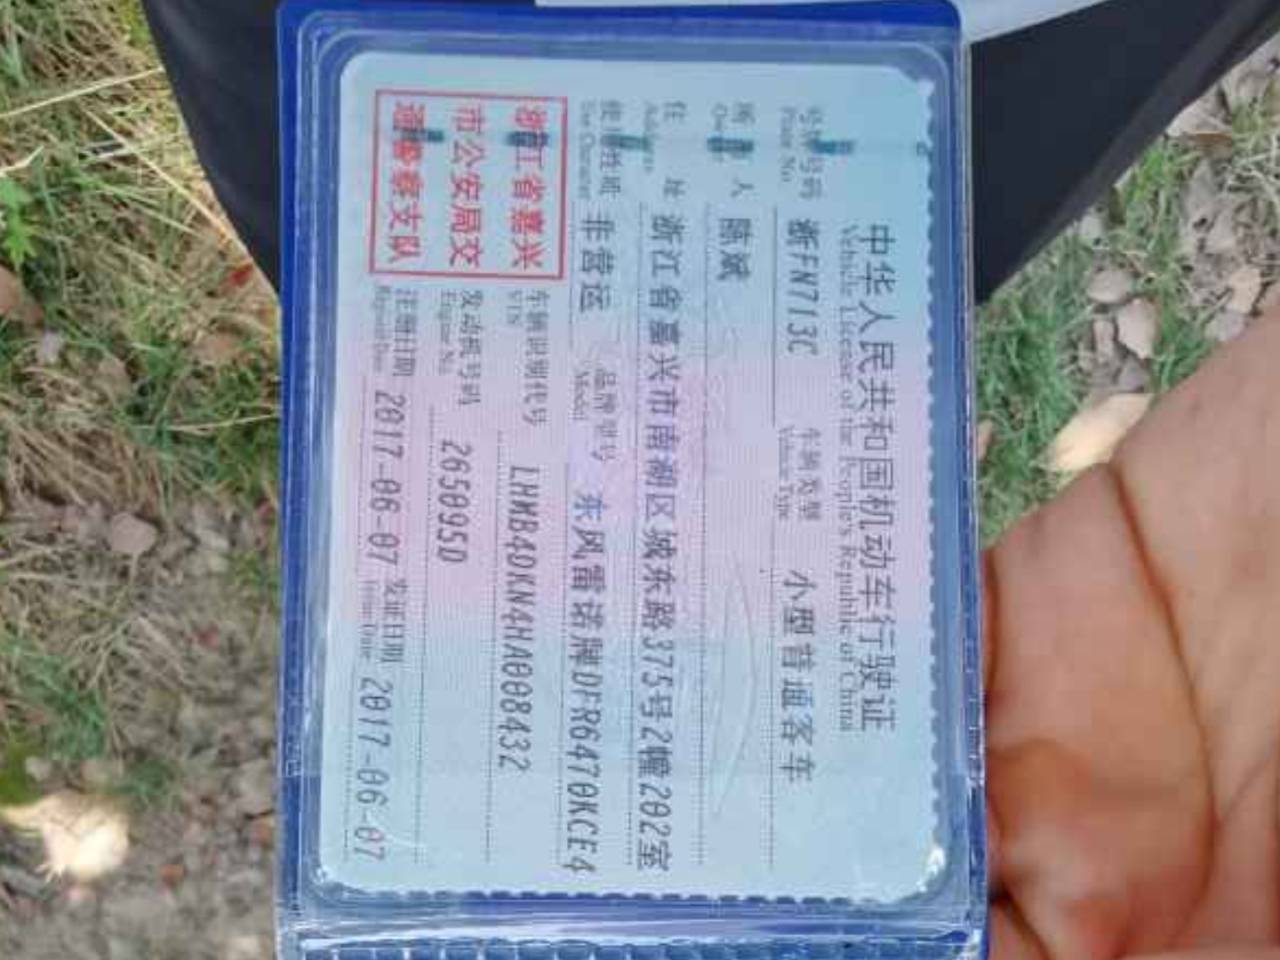 中华人民共和国机动车行驶证
Vehicle License of the People's Republic of China
号牌号码 浙FN713C 车辆类型 小型普通客车
Plate No. Vehicle Type
所 人 陈斌
住 址 浙江省嘉兴市南湖区城东路375号2幢202室
使 性质 非营运 品牌型号 东风雷诺牌DFR6470KCE4
Use Character Model
浙江省嘉兴
市公安局交
通警察支队
车辆识别代号 LHMB4DKN4HA008432
VIN
发动机号码 265095D
Engine No.
注册日期 2017-06-07 发证日期 2017-06-07
Register Date Issue Date